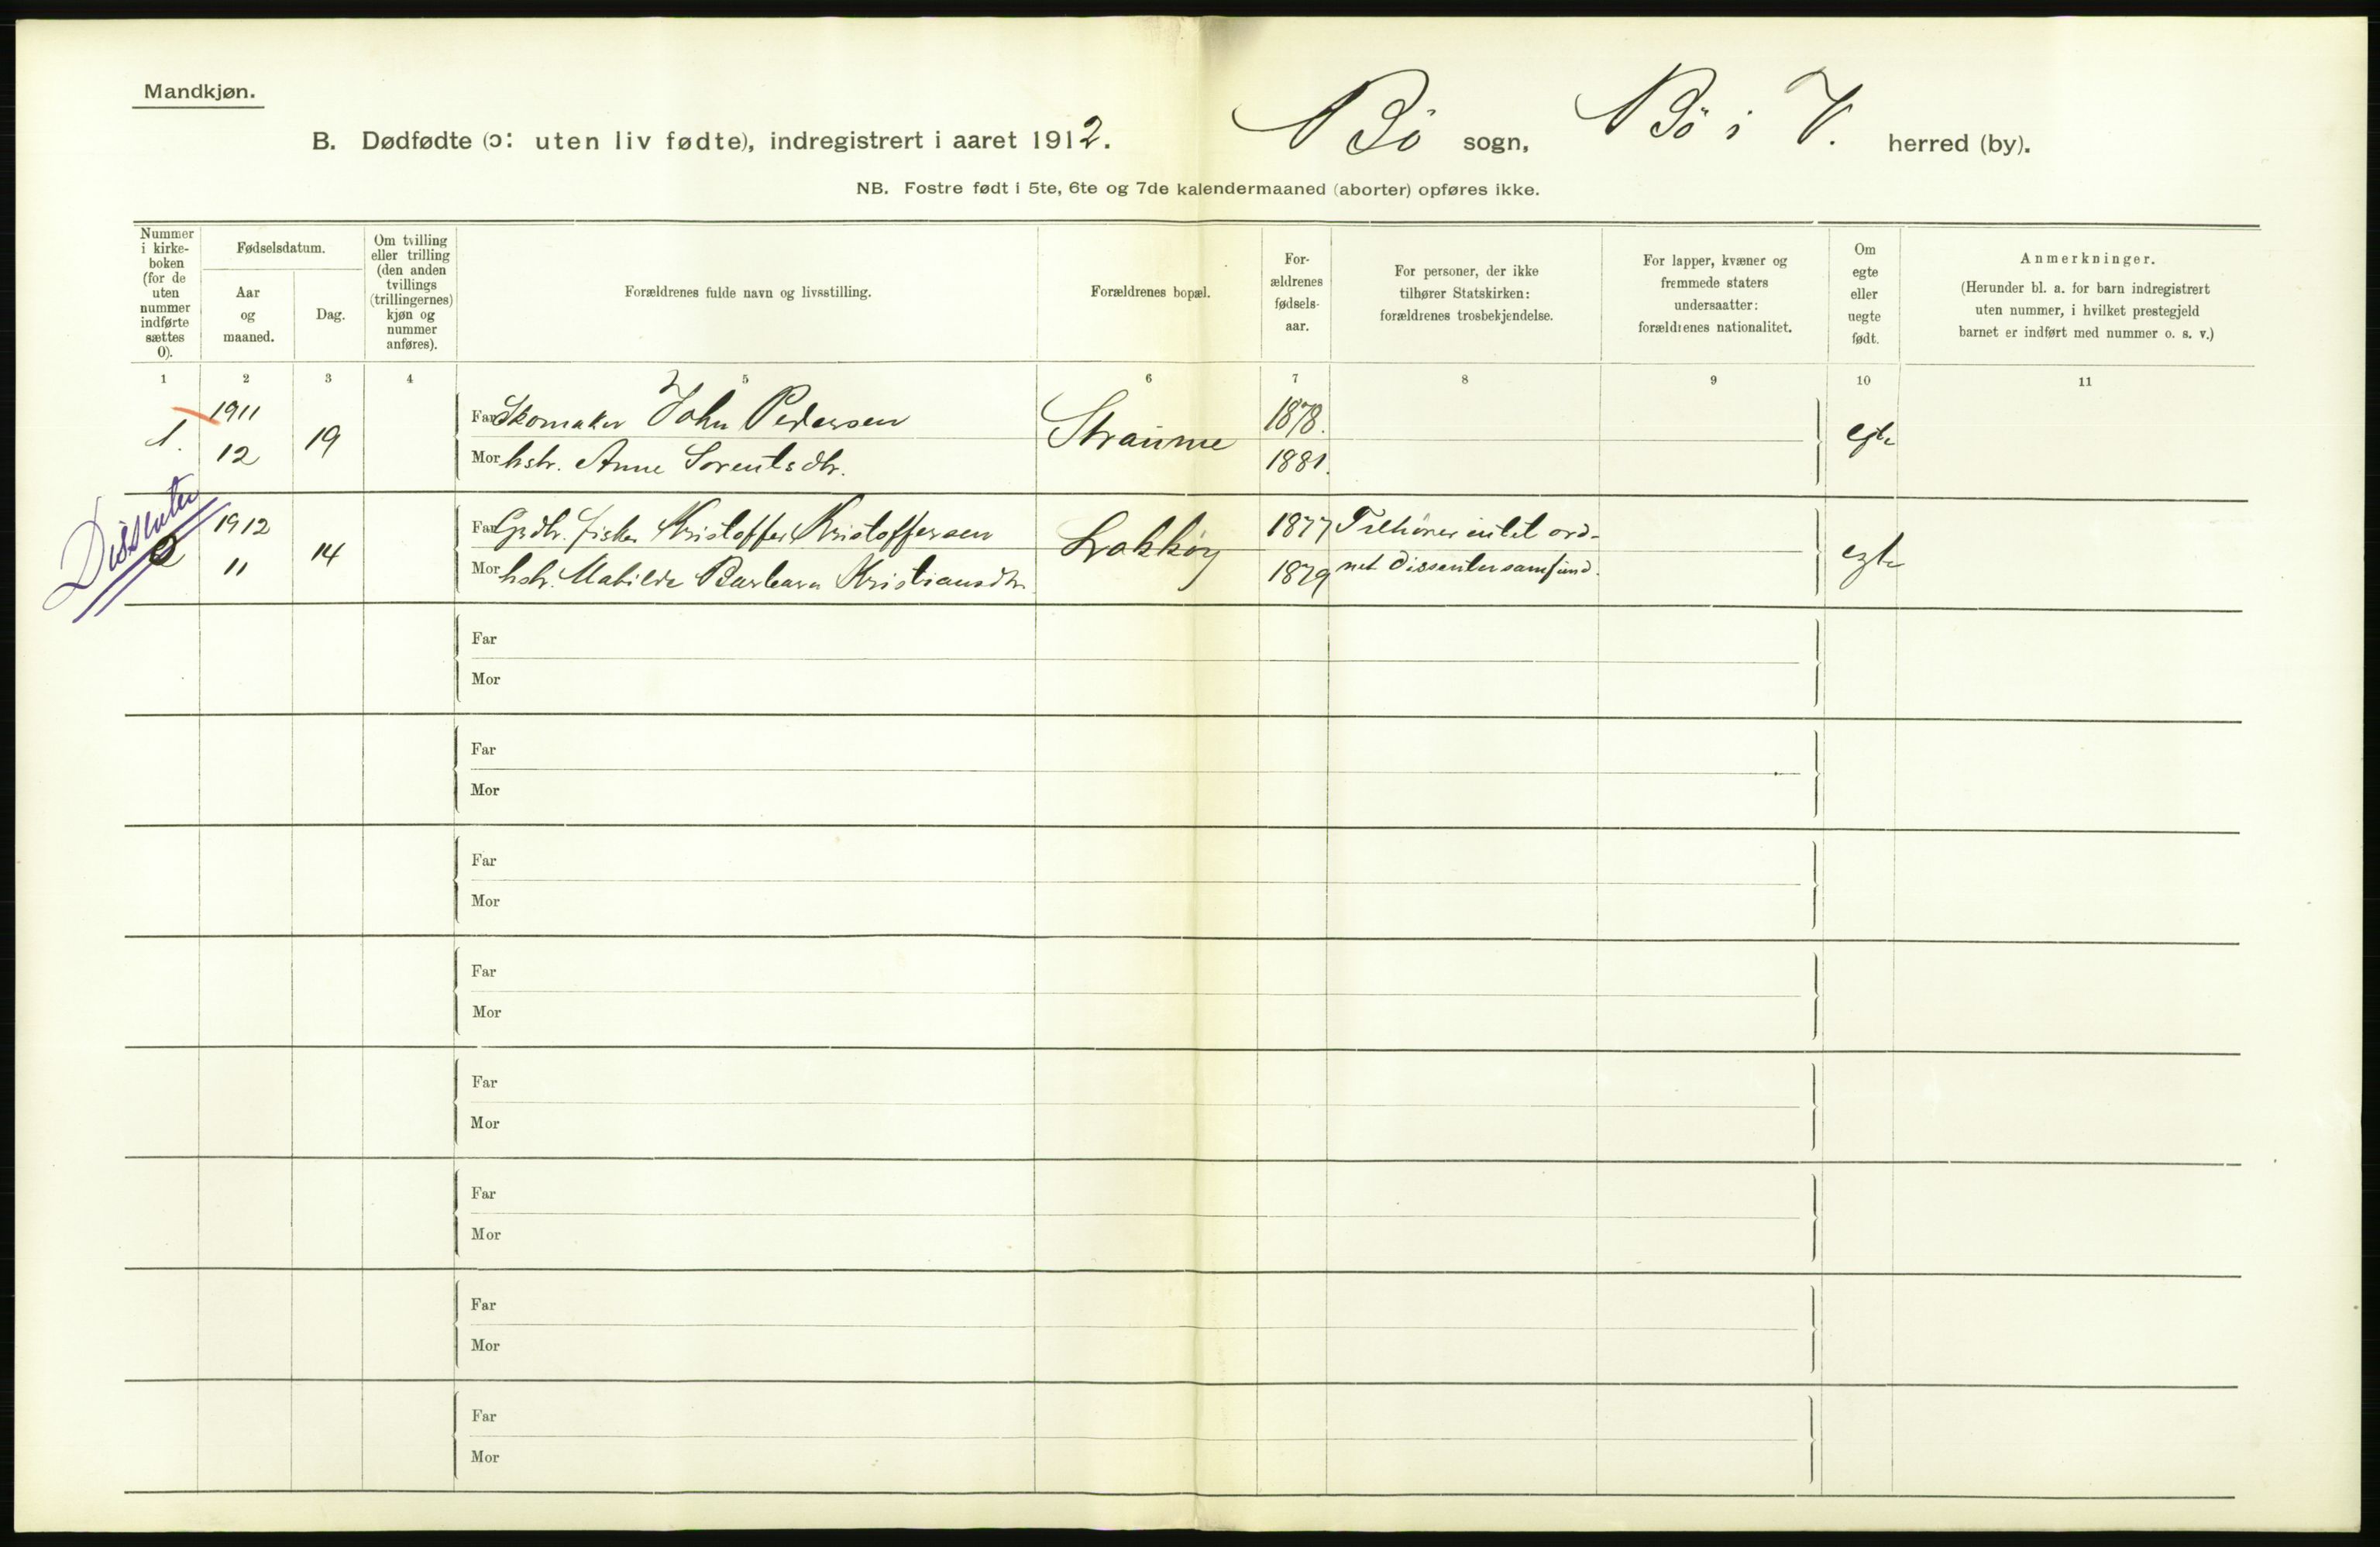 Mandkjøn.
B. Dødfødte (ɔ: uten liv fødte), indregistrert i aaret 1912. Bö sogn, Bö i V. herred (by).
NB. Fostre født i 5te, 6te og 7de kalendermaaned (aborter) opføres ikke.
Nummer
i kirke-
boken
(for de
uten
nummer
indførte
sættes
0).
Fødselsdatum.
Aar
og
maaned.
Dag.
Om tvilling
eller trilling
(den anden
tvillings
(trillingernes)
kjøn og
nummer
anføres).
Forældrenes fulde navn og livsstilling.
Forældrenes bopæl.
For-
ældrenes
fødsels-
aar.
For personer, der ikke
tilhører Statskirken:
forældrenes trosbekjendelse.
For lapper, kvæner og
fremmede staters
undersaatter:
forældrenes nationalitet.
Om
egte
eller
uegte
født.
Anmerkninger.
(Herunder bl. a. for barn indregistrert
uten nummer, i hvilket prestegjeld
barnet er indført med nummer o. s. v.)
1 2 3 4 5 6 7 8 9 10 11
1. 1911 12 19
Far Skomaker John Pedersen
Mor hstr. Anne Lorentsdtr.
Straume
1878.
1881.
egte
Dissenter
1912
11 14
Far Grdbr. fisker Kristoffer Kristoffersen
Mor hstr. Mathilde Barbara Kristiansdtr.
1877 Tilhører intet ord-
1879 net dissentersamfund.
egte
Far
Mor
Far
Mor
Far
Mor
Far
Mor
Far
Mor
Far
Mor
Far
Mor
Far
Mor